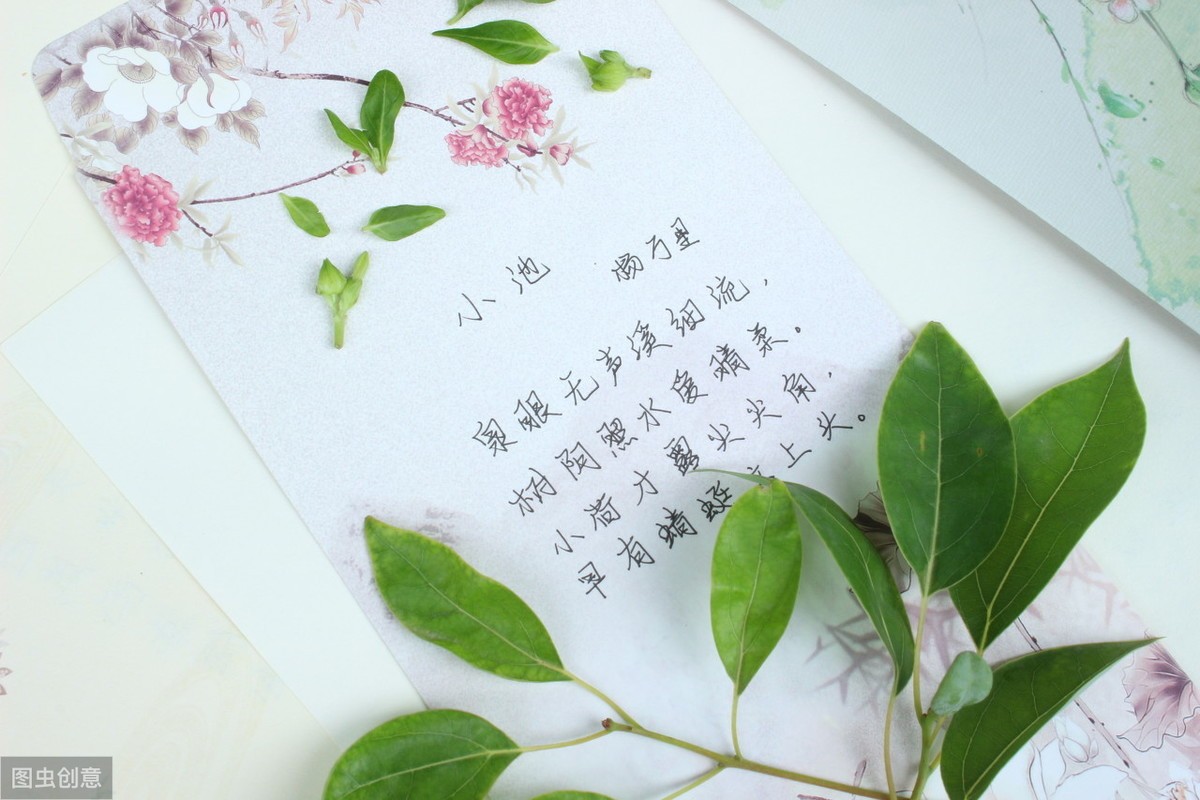 小池 杨万里
泉眼无声溪细流，
树阴照水爱晴柔。
小荷才露尖尖角，
早有蜻蜓上头。
图虫创意